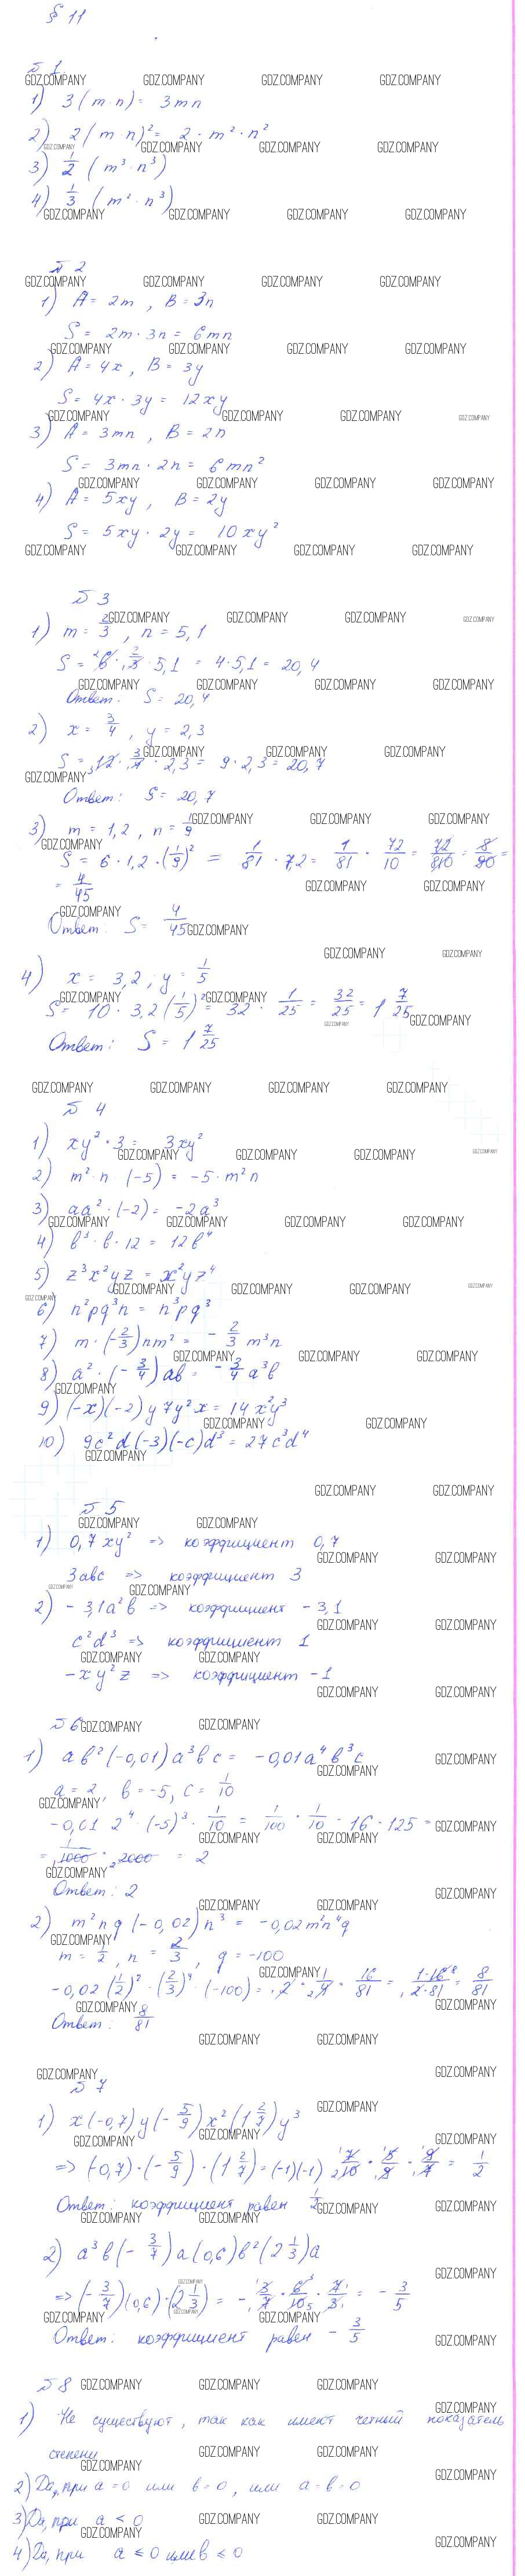 § 11
№ 1
1) 3 (m·n) = 3mn
2) 2 (m·n)² = 2 · m² · n²
3) 1/2 (m³ · n³)
4) 1/3 (m² · n³)
№ 2
1) A = 2m , B = 3n
S = 2m · 3n = 6mn
2) A = 4x , B = 3y
S = 4x · 3y = 12xy
3) A = 3mn , B = 2n
S = 3mn · 2n = 6mn²
4) A = 5xy , B = 2y
S = 5xy · 2y = 10xy²
№ 3
1) m = 2/3 , n = 5,1
S = 6 · 2/3 · 5,1 = 4 · 5,1 = 20,4
Ответ: S = 20,4
2) x = 3/4 , y = 2,3
S = 12 · 3/4 · 2,3 = 9 · 2,3 = 20,7
Ответ: S = 20,7
3) m = 1,2 , n = 1/9
S = 6 · 1,2 · (1/9)² = 1/81 · 7,2 = 1/81 · 72/10 = 72/810 = 8/90 =
= 4/45
Ответ: S = 4/45
4) x = 3,2 , y = 1/5
S = 10 · 3,2 (1/5)² = 32 · 1/25 = 32/25 = 1 7/25
Ответ: S = 1 7/25
№ 4
1) xy² · 3 = 3xy²
2) m² · n (-5) = -5 · m²n
3) aa² · (-2) = -2a³
4) b³ · b · 12 = 12b⁴
5) z³x²yz = x²yz⁴
6) n²pq³n = n³pq³
7) m · (-2/3) nm² = - 2/3 m³n
8) a² · (-3/4) ab = - 3/4 a³b
9) (-x)(-2) y 7y²x = 14x²y³
10) 9c²d (-3)(-c)d³ = 27c³d⁴
№ 5
1) 0,7xy² => коэффициент 0,7
3abc => коэффициент 3
2) - 3,1a²b => коэффициент - 3,1
c²d³ => коэффициент 1
-xy²z => коэффициент -1
№ 6
1) ab² (-0,01) a³bc = -0,01a⁴b³c
a = 2, b = -5, c = 1/10
-0,01 2⁴ (-5)³ · 1/10 = 1/100 · 1/10 · 16 · 125 =
= 1/1000 · 2000 = 2
Ответ: 2
2) m²nq (-0,02) n³ = -0,02m²n⁴q
m = 1/2 , n = 2/3 , q = -100
-0,02 (1/2)² · (2/3)⁴ · (-100) = 2 · 1/4 · 16/81 = 1·16/2·81 = 8/81
Ответ: 8/81
№ 7
1) x (-0,7) y (-5/9) x² (1 2/7) y³
=> (-0,7) · (-5/9) · (1 2/7) = (-1)(-1) 7/10 · 5/9 · 9/7 = 1/2
Ответ: коэффициент равен 1/2
2) a³b (-3/7) a (0,6) b² (2 1/3) a
=> (-3/7)(0,6) · (2 1/3) = - 3/7 · 6/10 · 7/3 = - 3/5
Ответ: коэффициент равен - 3/5
№ 8
1) Не существуют, так как имеют четный показатель
степени
2) Да, при a = 0 или b = 0, или a = b = 0
3) Да, при a < 0
4) Да, при a ≤ 0 или b ≤ 0